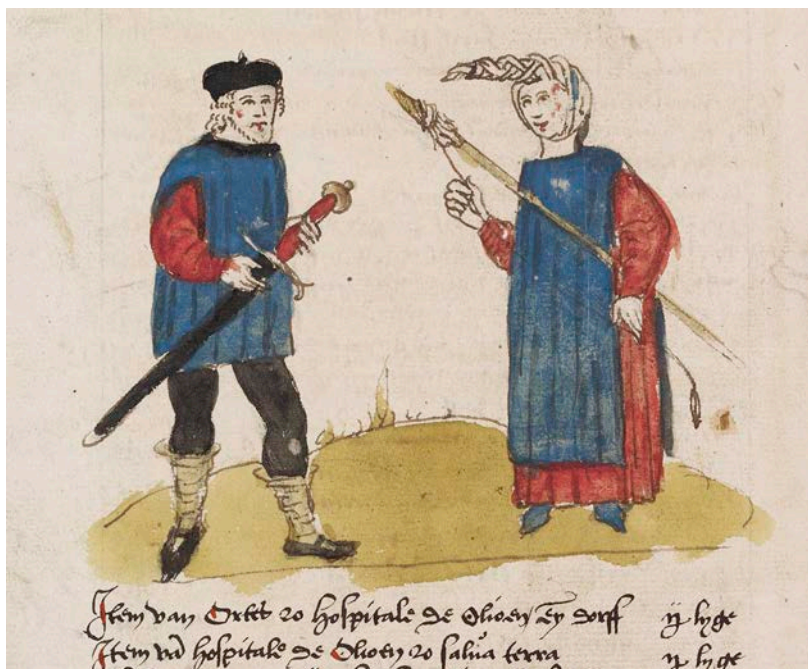 Item van Ortes zo hospitale de Olioen eyn dorff ij lyge
Item vā hospitale de Olioen zo salua terra ij lyge